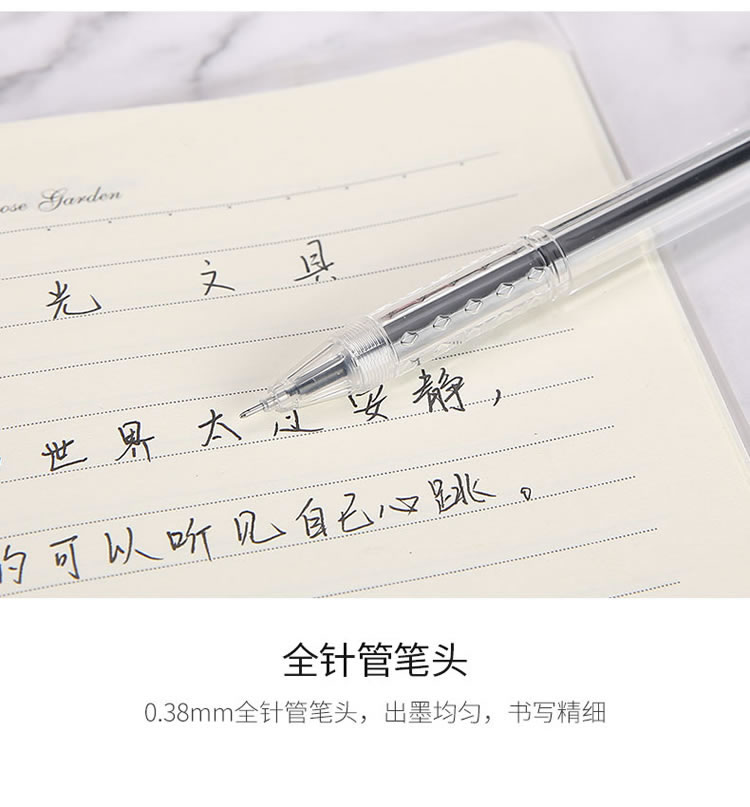 ose Garden
光 文 具
世界太过安静，
的可以听见自己心跳。
全针管笔头
0.38mm全针管笔头，出墨均匀，书写精细